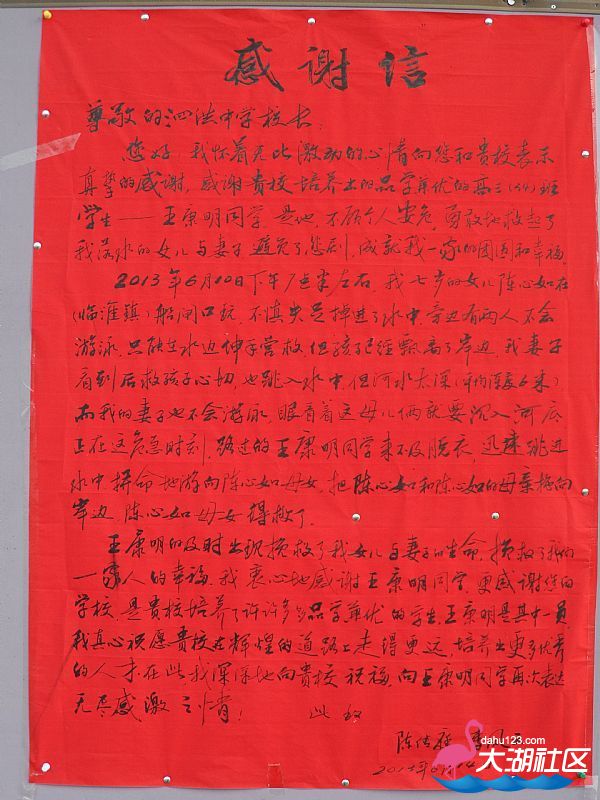 感谢信
尊敬的泗洪中学校长:
您好,我怀着无比激动的心情向您和贵校表示
真挚的感谢,感谢贵校培养出的品学兼优的高三(54)班
学生——王康明同学,是他,不顾个人安危,勇敢地救起了
我落水的女儿与妻子,避免了悲剧,成就我一家的团圆和幸福。
2013年6月10日下午7点半左右,我七岁的女儿陈心如在
(临淮镇)船闸口玩,不慎失足掉进了水中,旁边有两人不会
游泳,只能在水边伸手营救,但孩子已经飘离了岸边,我妻子
看到后救孩子心切,也跳入水中,但河水太深(平均深度6米)
而我的妻子也不会游泳,眼看着这母儿俩就要沉入河底
正在这危急时刻,路过的王康明同学来不及脱衣,迅速跳进
水中拼命地游向陈心如母女,把陈心如和陈心如的母亲推向
岸边,陈心如母女得救了。
王康明的及时出现挽救了我女儿与妻子的生命,挽救了我们
一家人的幸福,我衷心地感谢王康明同学,更感谢您的
学校,是贵校培养了许许多多品学兼优的学生,王康明是其中一员,
我真心祝愿贵校在辉煌的道路上走得更远,培养出更多优秀
的人才在此我深深地向贵校祝福,向王康明同学再次表达
无尽感激之情! 此致
陈
2013年6月14
dahu123.com
大湖社区